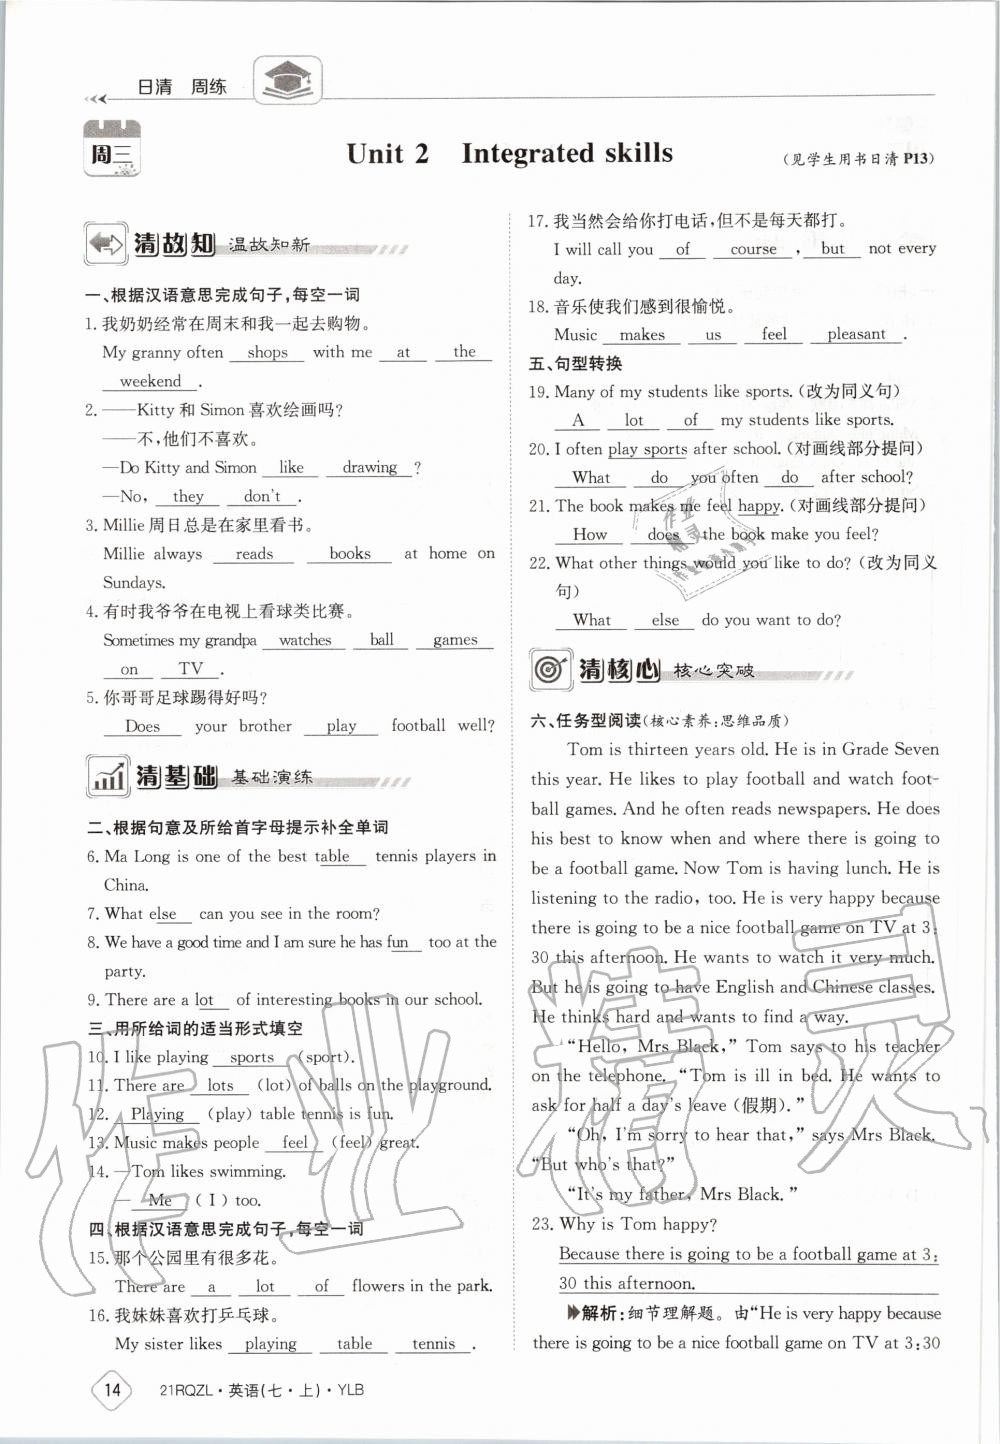 日清 周练
周三
Unit 2 Integrated skills
(见学生用书日清 P13)
清故知 温故知新
一、根据汉语意思完成句子,每空一词
1. 我奶奶经常在周末和我一起去购物。
My granny often shops with me at the
weekend .
2. ——Kitty 和 Simon 喜欢绘画吗?
——不,他们不喜欢。
—Do Kitty and Simon like drawing ?
—No, they don't .
3. Millie 周日总是在家里看书。
Millie always reads books at home on
Sundays.
4. 有时我爷爷在电视上看球类比赛。
Sometimes my grandpa watches ball games
on TV .
5. 你哥哥足球踢得好吗?
Does your brother play football well?
清基础 基础演练
二、根据句意及所给首字母提示补全单词
6. Ma Long is one of the best table tennis players in
China.
7. What else can you see in the room?
8. We have a good time and I am sure he has fun too at the
party.
9. There are a lot of interesting books in our school.
三、用所给词的适当形式填空
10. I like playing sports (sport).
11. There are lots (lot) of balls on the playground.
12. Playing (play) table tennis is fun.
13. Music makes people feel (feel) great.
14. —Tom likes swimming.
— Me (I) too.
四、根据汉语意思完成句子,每空一词
15. 那个公园里有很多花。
There are a lot of flowers in the park.
16. 我妹妹喜欢打乒乓球。
My sister likes playing table tennis .
14 21RQZL·英语(七·上)·YLB
17. 我当然会给你打电话,但不是每天都打。
I will call you of course , but not every
day.
18. 音乐使我们感到很愉悦。
Music makes us feel pleasant .
五、句型转换
19. Many of my students like sports. (改为同义句)
A lot of my students like sports.
20. I often play sports after school. (对画线部分提问)
What do you often do after school?
21. The book makes me feel happy. (对画线部分提问)
How does the book make you feel?
22. What other things would you like to do? (改为同义
句)
What else do you want to do?
清核心 核心突破
六、任务型阅读(核心素养:思维品质)
Tom is thirteen years old. He is in Grade Seven
this year. He likes to play football and watch foot-
ball games. And he often reads newspapers. He does
his best to know when and where there is going to
be a football game. Now Tom is having lunch. He is
listening to the radio, too. He is very happy because
there is going to be a nice football game on TV at 3:
30 this afternoon. He wants to watch it very much.
But he is going to have English and Chinese classes.
He thinks hard and wants to find a way.
“Hello, Mrs Black,” Tom says to his teacher
on the telephone. “Tom is ill in bed. He wants to
ask for half a day's leave (假期).”
“Oh, I'm sorry to hear that,” says Mrs Black.
“But who's that?”
“It's my father, Mrs Black.”
23. Why is Tom happy?
Because there is going to be a football game at 3:
30 this afternoon.
解析:细节理解题。由“He is very happy because
there is going to be a nice football game on TV at 3:30
作业精灵